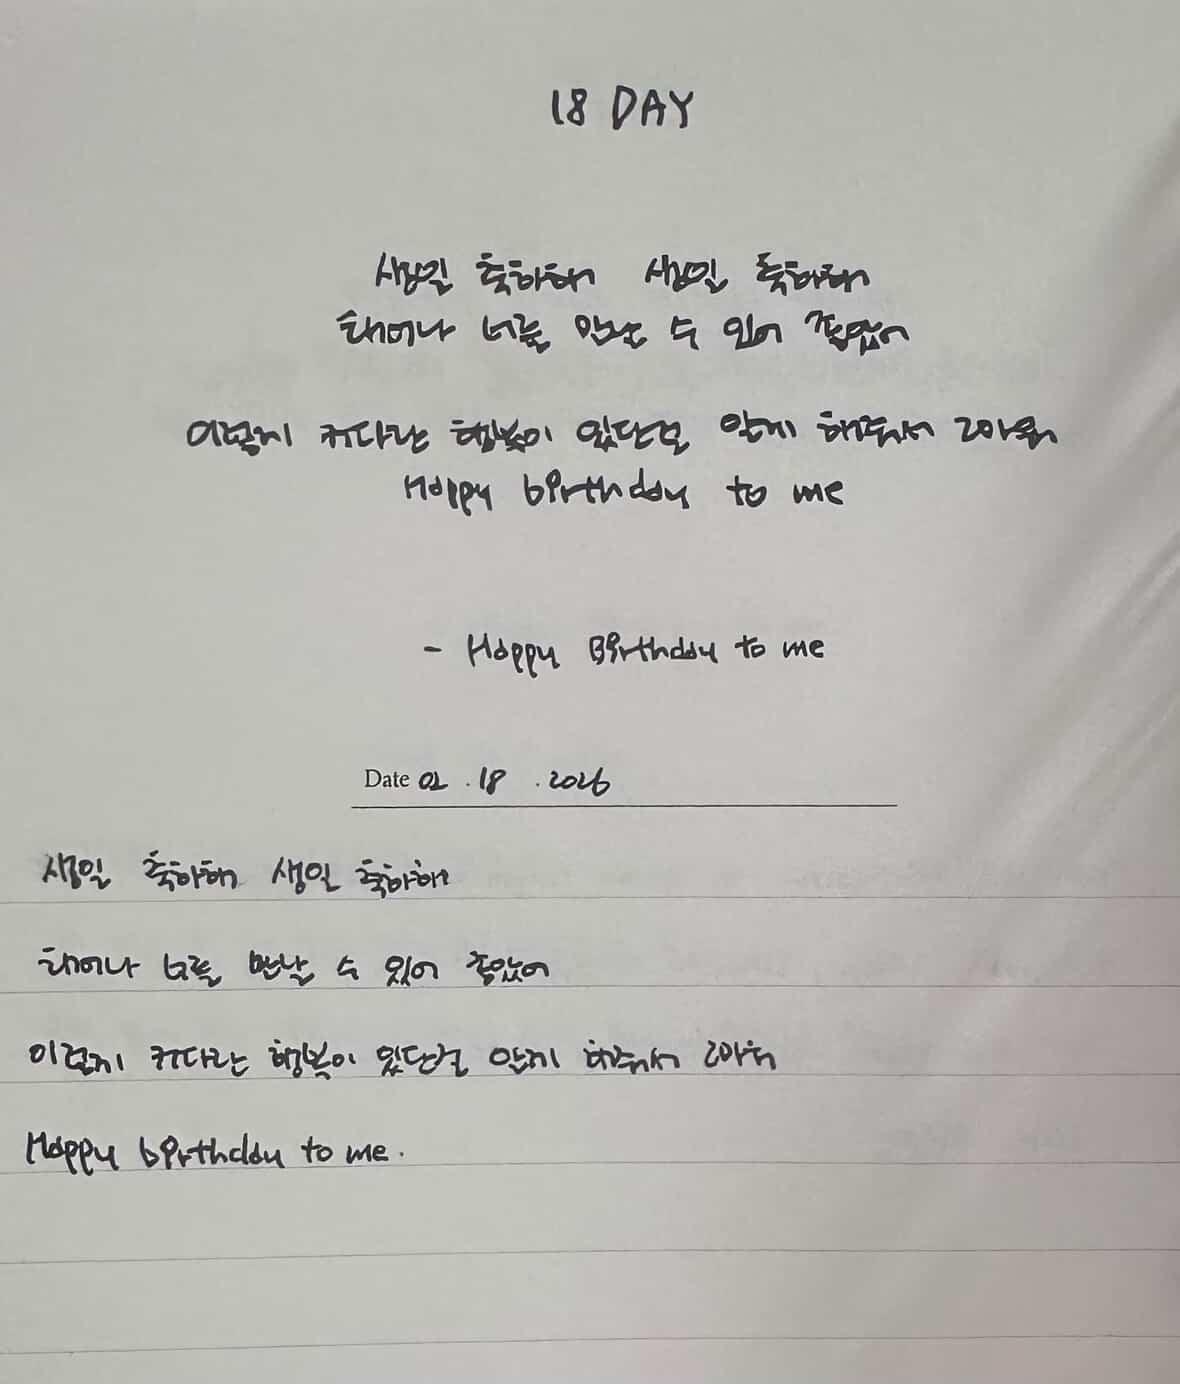 18 DAY
생일 축하해 생일 축하해
태어나 너를 만날 수 있어 좋았어
이렇게 커다란 행복이 있단걸 알게 해줘서 고마워
Happy birthday to me
- Happy Birthday to me
Date 02 . 18 . 2026
생일 축하해 생일 축하해
태어나 너를 만날 수 있어 좋았어
이렇게 커다란 행복이 있단걸 알게 해줘서 고마워
Happy birthday to me.